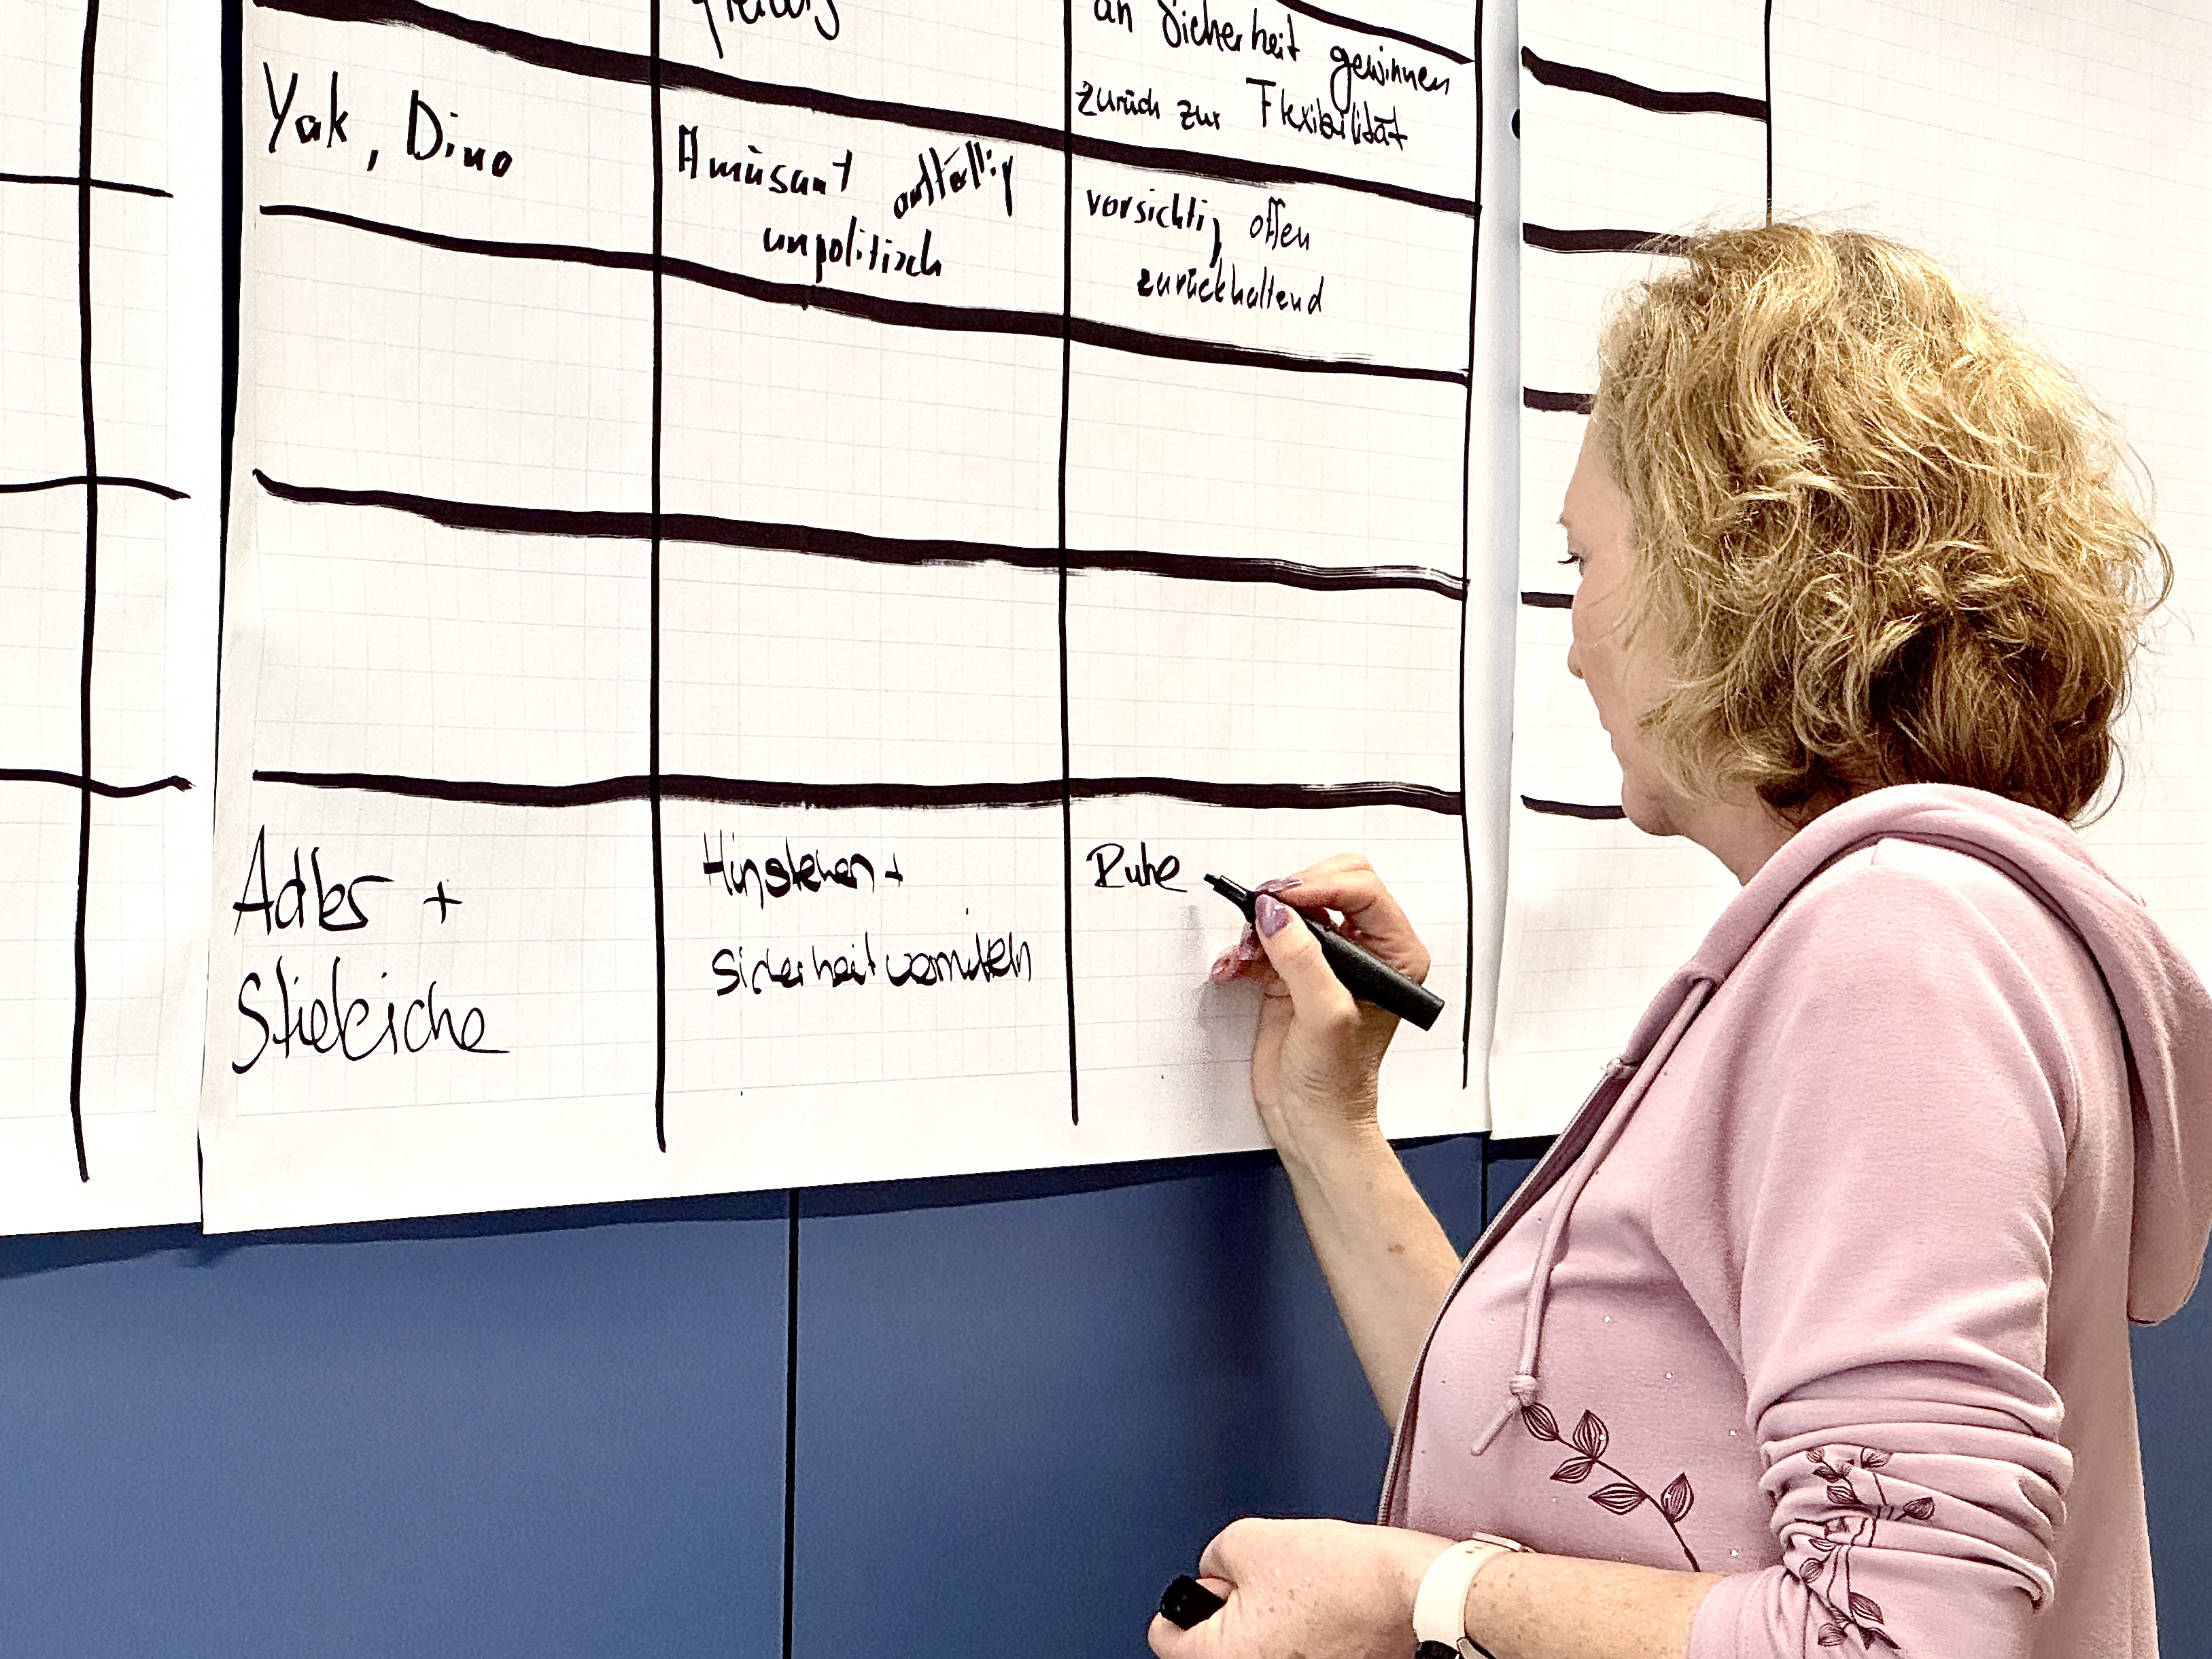 an Sicherheit gewinnen
zurück zur Flexibilität
Yak, Dino
Amüsant auffällig
unpolitisch
vorsichtig offen
zurückhaltend
Adler +
Stieleiche
Hinstehen +
Sicherheit vermitteln
Ruhe